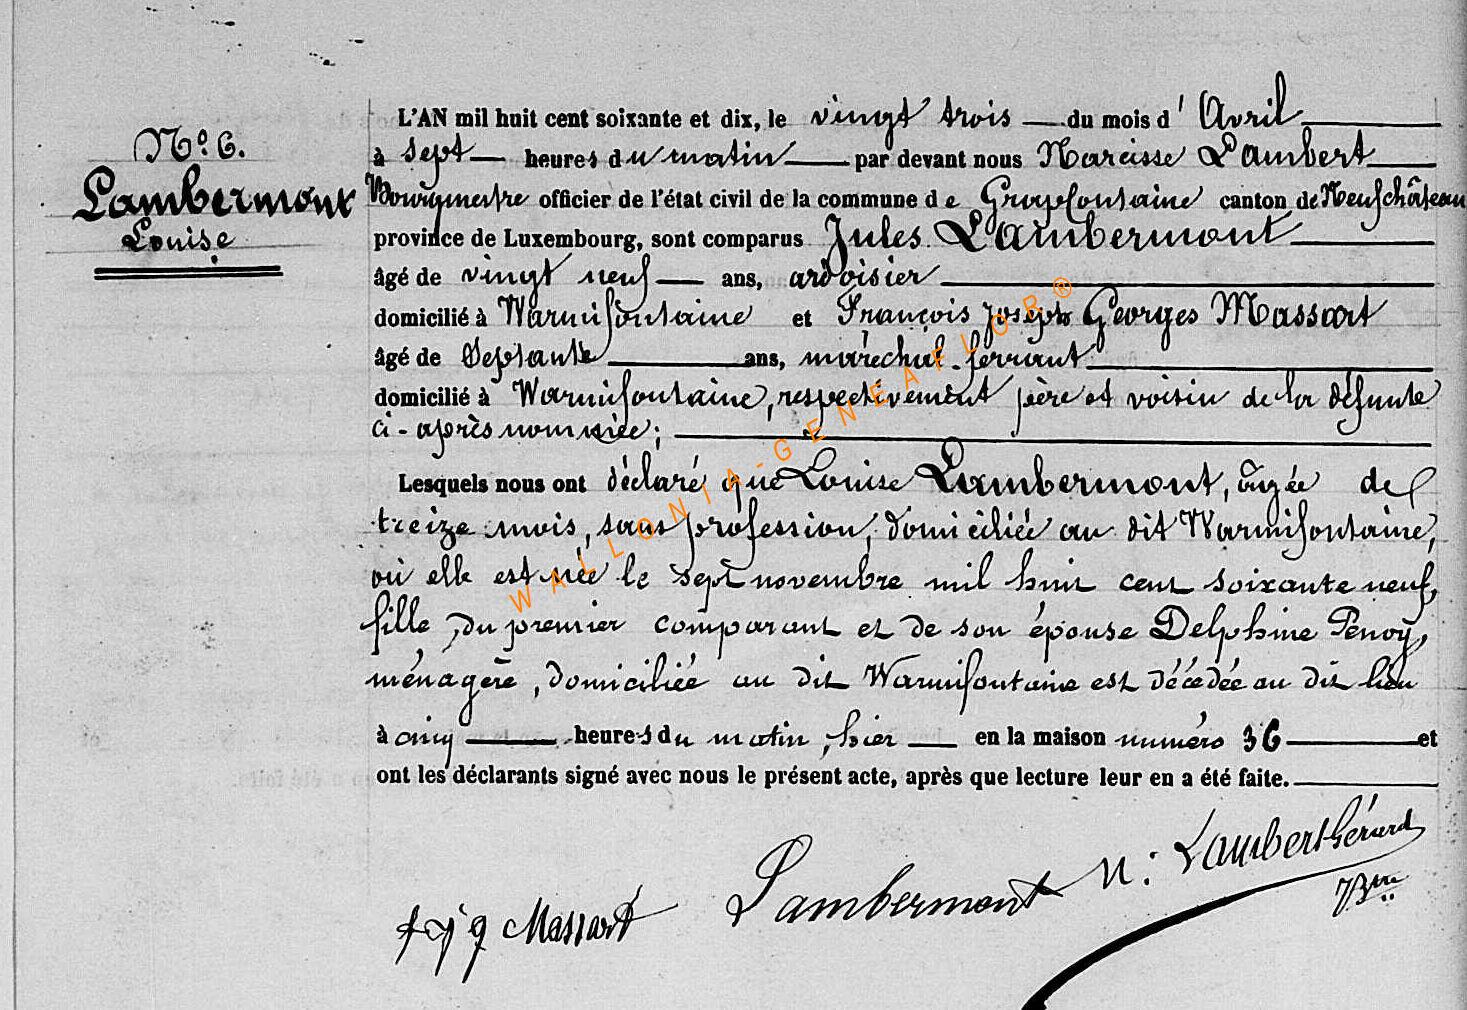 N° 6.
Lambermont
Louise
L'AN mil huit cent soixante et dix, le vingt trois du mois d'Avril
à sept heures du matin par devant nous Narcisse Lambert
Bourgmestre officier de l'état civil de la commune de Grapfontaine canton de Neufchâteau
province de Luxembourg, sont comparus Jules Lambermont
âgé de vingt neuf ans, ardoisier
domicilié à Warmifontaine et François Joseph Georges Massart
âgé de Septante ans, maréchal-ferrant
domicilié à Warmifontaine, respectivement père et voisin de la défunte
ci-après nommée;
Lesquels nous ont déclaré que Louise Lambermont, âgée de
treize mois, sans profession, domiciliée au dit Warmifontaine,
où elle est née le sept novembre mil huit cent soixante neuf,
fille, du premier comparant et de son épouse Delphine Penoy,
ménagère, domiciliée au dit Warmifontaine est décédée au dit lieu
à cinq heures du matin, hier en la maison numéro 36 et
ont les déclarants signé avec nous le présent acte, après que lecture leur en a été faite.
N: Lambert Gérard
Bre
Lambermont
f j g Massart
WALLONIA-GENEAFLOR®